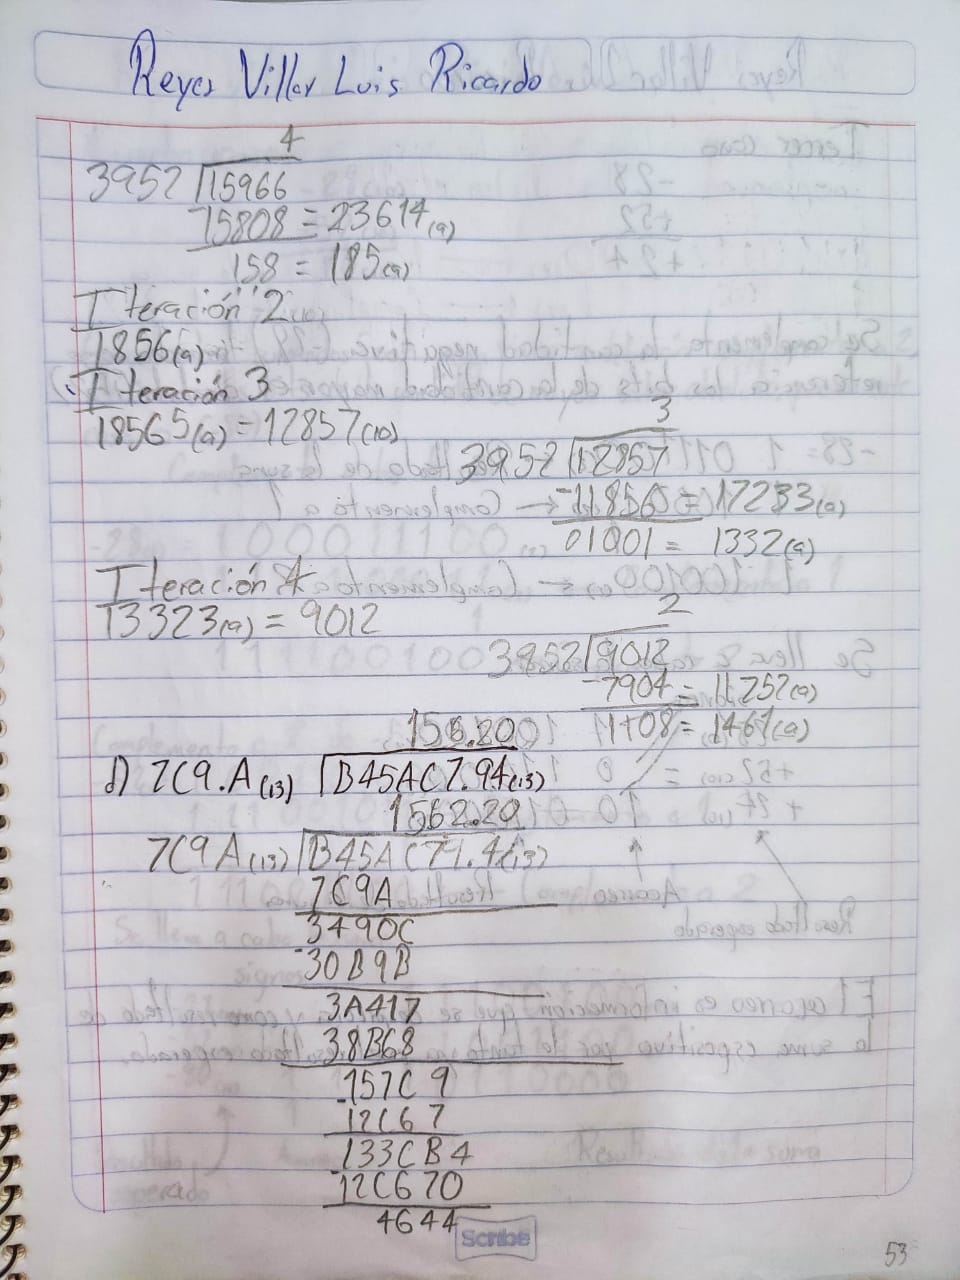 Reyes Villar Luis Ricardo
4
3952 15966
15808 = 23614(9)
158 = 185(9)
Iteración 2
1856(9)
Iteración 3
18565(9) = 12857(10)
3
3952 12857
-11856 = 17233(9)
01001 = 1332(9)
Iteración 4
13323(9) = 9012
2
3952 9012
-7904 = 11252(9)
1108 = 1461(9)
156.20
7C9.A(13) B45AC7.94(13)
1562.20
7C9A(13) B45AC79.4(13)
7C9A
3490C
-30B9B
3A417
38B68
157C9
-12C67
133CB4
-12C670
4644
Scribe
53